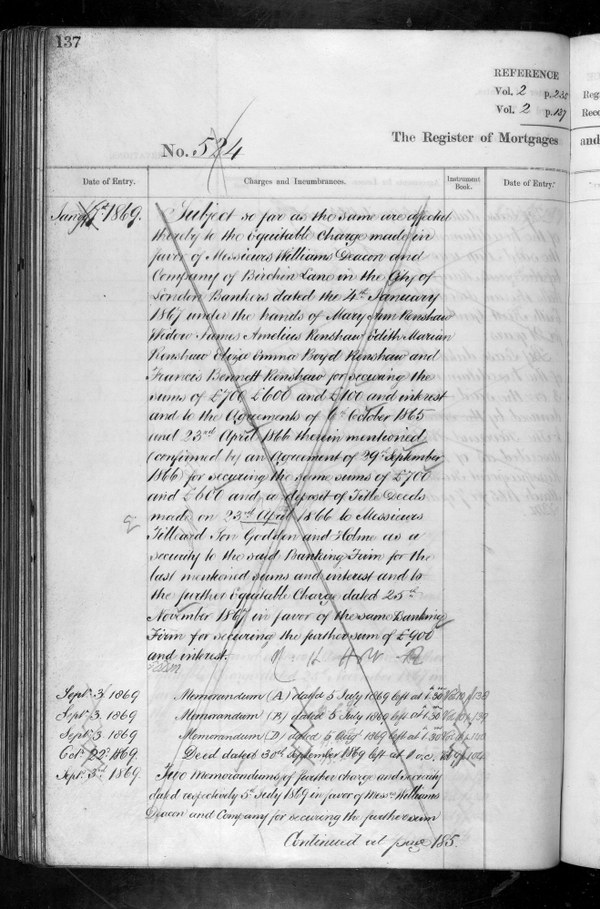 137
REFERENCE
Vol. 2 p.
Vol. 2 p. 137
Reg
Reco
No. 524
The Register of Mortgages
and
Date of Entry. Charges and Incumbrances. Instrument Book. Date of Entry.
1869. Subject so far as the same are affected
thereby to the Equitable Charge made in
favor of Messieurs Williams Deacon and
Company of Birchin Lane in the City of
London Bankers dated the 4th January
1867 under the hands of Mary Ann Renshaw
Widow James Amelius Renshaw Edith Marian
Renshaw Eliza Emma Boyd Renshaw and
Francis Bennett Renshaw for securing the
sums of £700 £600 and £100 and interest
and to the Agreements of 6th October 1865
and 23rd April 1866 therein mentioned
(confirmed by an Agreement of 29th September
1866) for securing the same sums of £700
and £600 and a deposit of Title Deeds
made on 23rd April 1866 to Messieurs
Tilleard Son Godden and Holme as a
security to the said Banking Firm for the
last mentioned sums and interest and to
the further Equitable Charge dated 25th
November 1867 in favor of the same Banking
Firm for securing the further sum of £900
and interest.
Sept. 3 1869 Memorandum (A) dated 5 July 1869 left at 1.30
Sept. 3 1869 Memorandum (B) dated 5 July 1869 left at 1.30
Sept. 3 1869 Memorandum (D) dated 5 1869 left at 1.30
Oct. 22 1869. Deed dated 30th September 1869 left at
Sept. 3rd 1869. Two Memorandums of further charge and security
dated respectively 5th July 1869 in favor of Messrs Williams
Deacon and Company for securing the further sum
Continued at page 185.